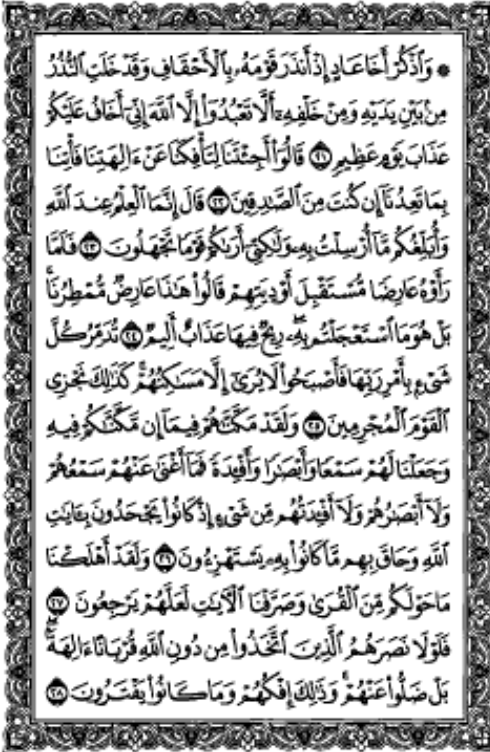 ۞ وَٱذۡكُرۡ أَخَا عَادٍ إِذۡ أَنذَرَ قَوۡمَهُۥ بِٱلۡأَحۡقَافِ وَقَدۡ خَلَتِ ٱلنُّذُرُ
مِنۢ بَيۡنِ يَدَيۡهِ وَمِنۡ خَلۡفِهِۦٓ أَلَّا تَعۡبُدُوٓاْ إِلَّا ٱللَّهَ إِنِّيٓ أَخَافُ عَلَيۡكُمۡ
عَذَابَ يَوۡمٍ عَظِيمٖ ٢١ قَالُوٓاْ أَجِئۡتَنَا لِتَأۡفِكَنَا عَنۡ ءَالِهَتِنَا فَأۡتِنَا
بِمَا تَعِدُنَآ إِن كُنتَ مِنَ ٱلصَّٰدِقِينَ ٢٢ قَالَ إِنَّمَا ٱلۡعِلۡمُ عِندَ ٱللَّهِ
وَأُبَلِّغُكُم مَّآ أُرۡسِلۡتُ بِهِۦ وَلَٰكِنِّيٓ أَرَىٰكُمۡ قَوۡمٗا تَجۡهَلُونَ ٢٣ فَلَمَّا
رَأَوۡهُ عَارِضٗا مُّسۡتَقۡبِلَ أَوۡدِيَتِهِمۡ قَالُواْ هَٰذَا عَارِضٞ مُّمۡطِرُنَاۚ
بَلۡ هُوَ مَا ٱسۡتَعۡجَلۡتُم بِهِۦۖ رِيحٞ فِيهَا عَذَابٌ أَلِيمٞ ٢٤ تُدَمِّرُ كُلَّ
شَيۡءِۭ بِأَمۡرِ رَبِّهَا فَأَصۡبَحُواْ لَا يُرَىٰٓ إِلَّا مَسَٰكِنُهُمۡۚ كَذَٰلِكَ نَجۡزِي
ٱلۡقَوۡمَ ٱلۡمُجۡرِمِينَ ٢٥ وَلَقَدۡ مَكَّنَّٰهُمۡ فِيمَآ إِن مَّكَّنَّٰكُمۡ فِيهِ
وَجَعَلۡنَا لَهُمۡ سَمۡعٗا وَأَبۡصَٰرٗا وَأَفۡـِٔدَةٗ فَمَآ أَغۡنَىٰ عَنۡهُمۡ سَمۡعُهُمۡ
وَلَآ أَبۡصَٰرُهُمۡ وَلَآ أَفۡـِٔدَتُهُم مِّن شَيۡءٍ إِذۡ كَانُواْ يَجۡحَدُونَ بِـَٔايَٰتِ
ٱللَّهِ وَحَاقَ بِهِم مَّا كَانُواْ بِهِۦ يَسۡتَهۡزِءُونَ ٢٦ وَلَقَدۡ أَهۡلَكۡنَا
مَا حَوۡلَكُم مِّنَ ٱلۡقُرَىٰ وَصَرَّفۡنَا ٱلۡأٓيَٰتِ لَعَلَّهُمۡ يَرۡجِعُونَ ٢٧
فَلَوۡلَا نَصَرَهُمُ ٱلَّذِينَ ٱتَّخَذُواْ مِن دُونِ ٱللَّهِ قُرۡبَانًا ءَالِهَةَۢۖ
بَلۡ ضَلُّواْ عَنۡهُمۡۚ وَذَٰلِكَ إِفۡكُهُمۡ وَمَا كَانُواْ يَفۡتَرُونَ ٢٨